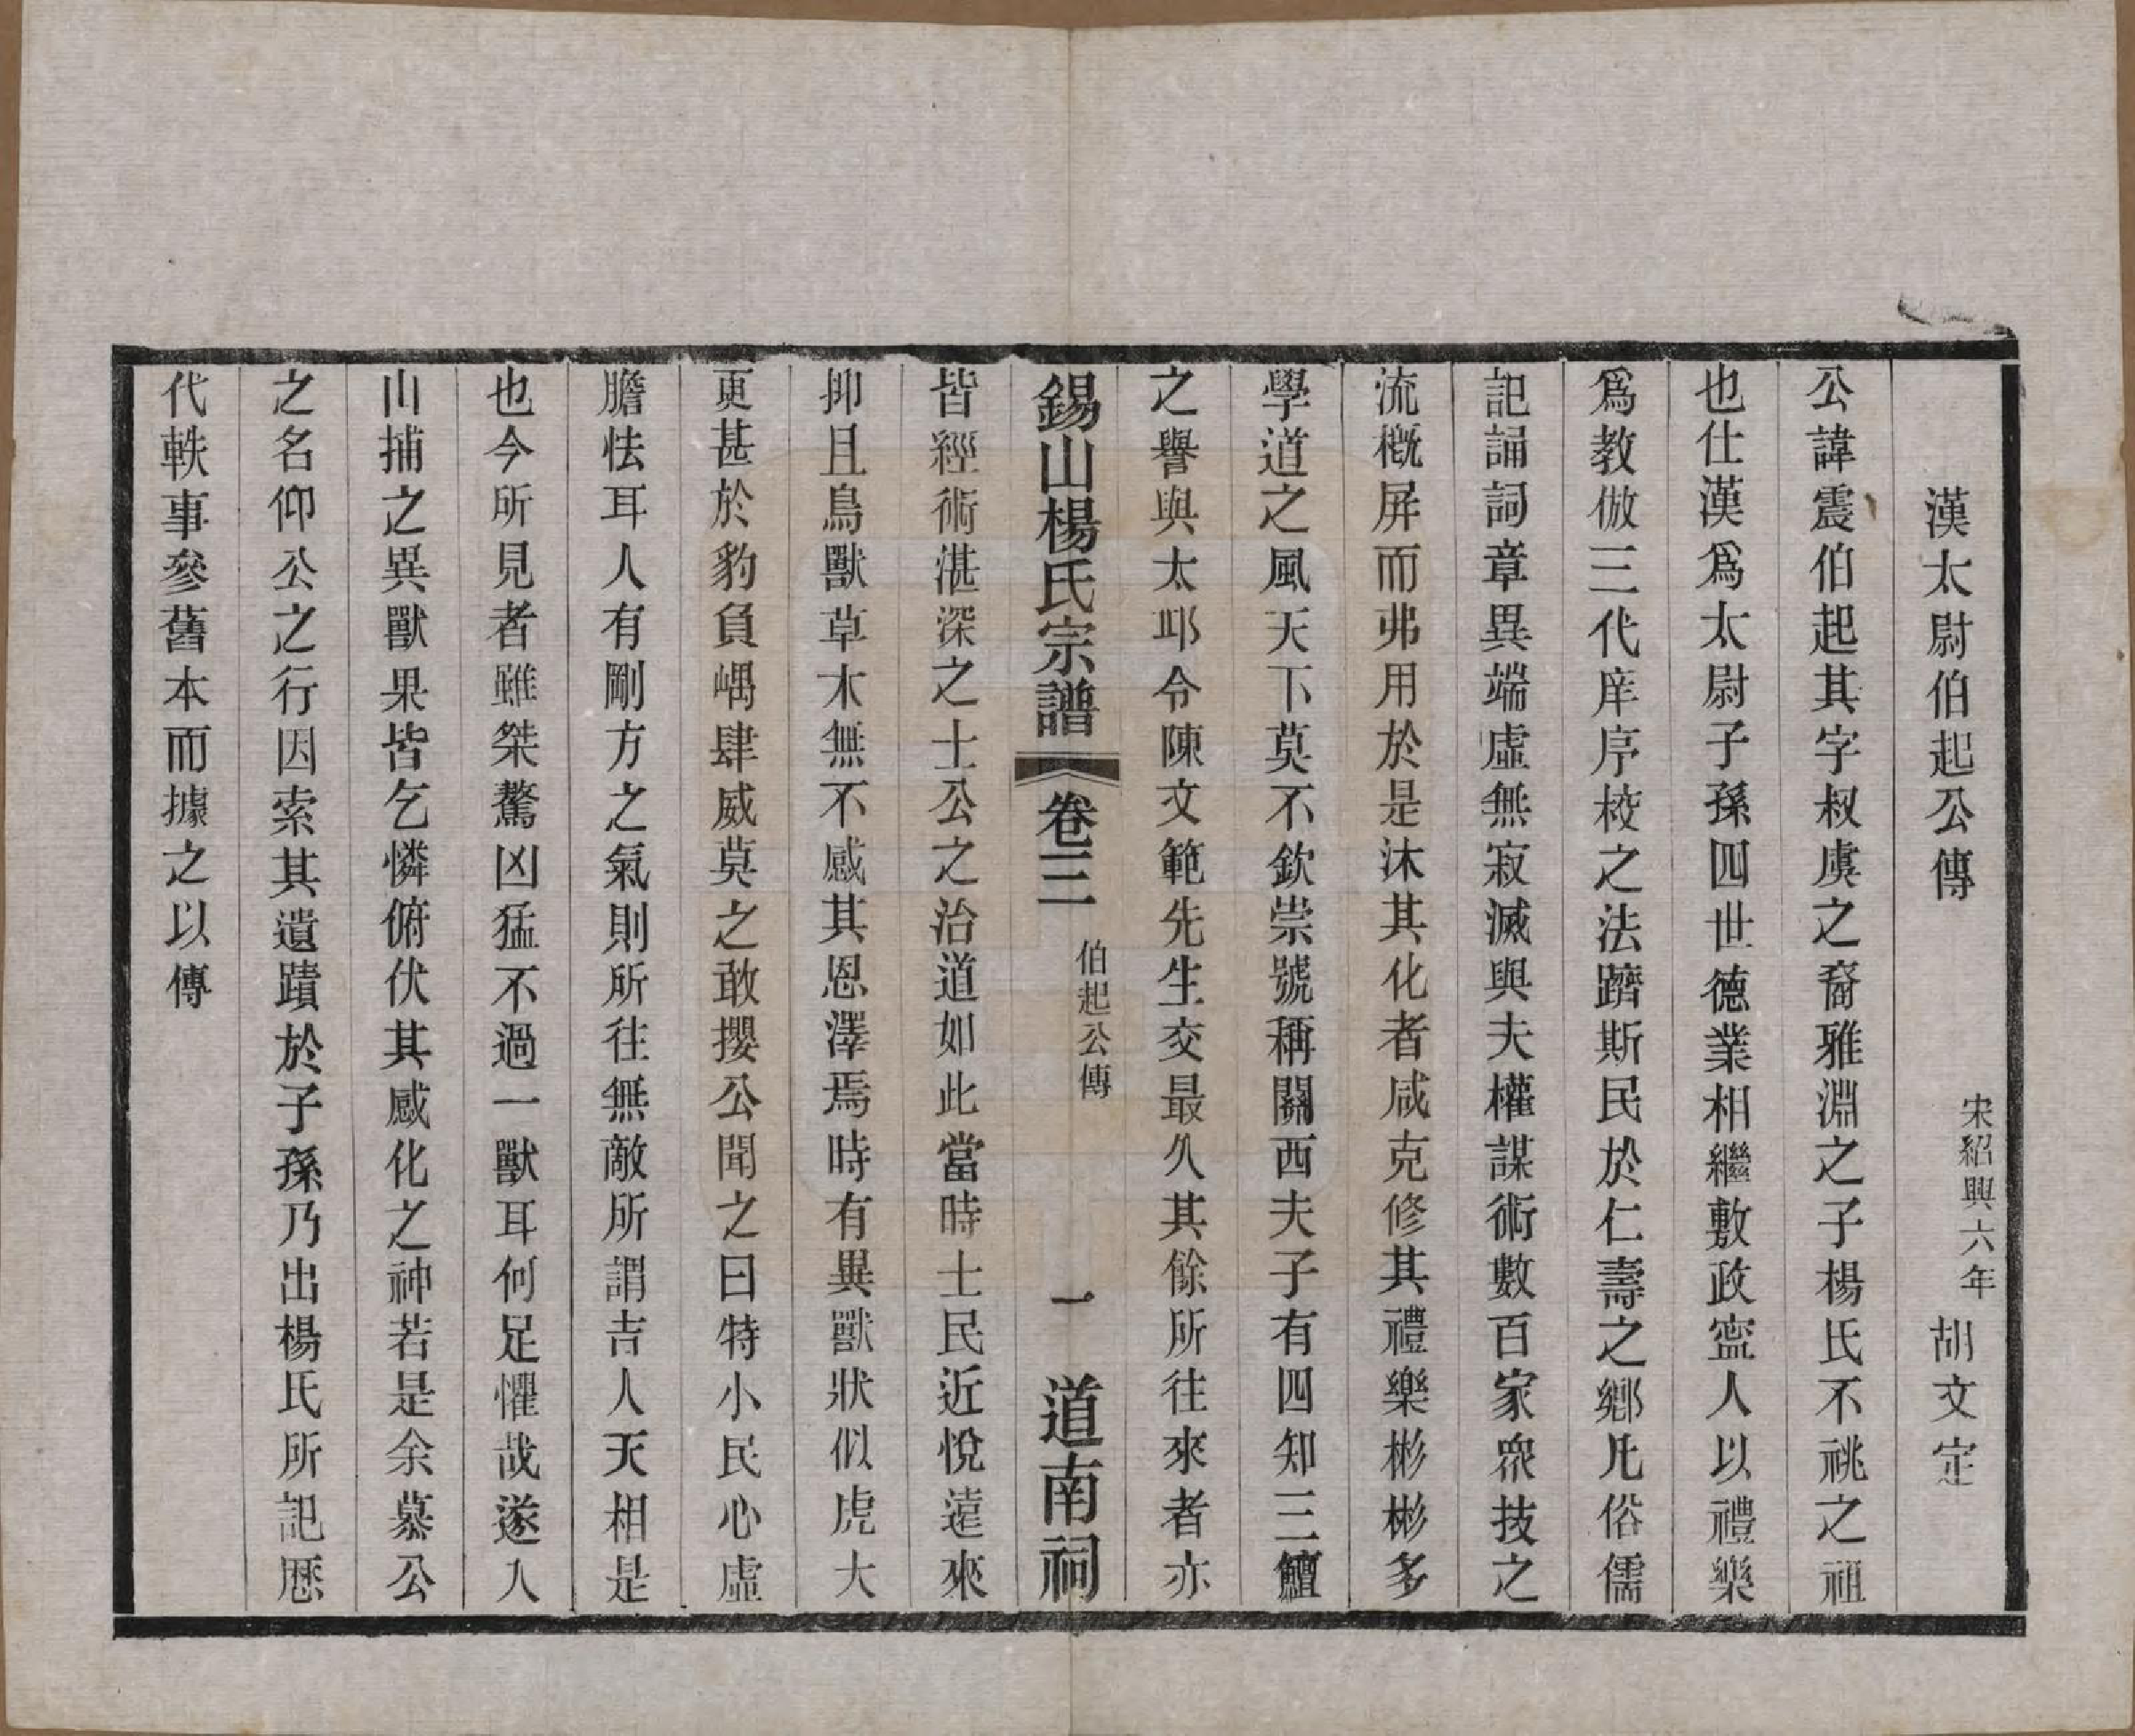 漢太尉伯起公傳　宋紹興六年　胡文定
公諱震伯起其字叔虞之裔雅淵之子楊氏不祧之祖
也仕漢爲太尉子孫四世德業相繼敷政寍人以禮樂
爲教倣三代庠序校之法躋斯民於仁壽之鄉凡俗儒
記誦詞章異端虛無寂滅與夫權謀術數百家眾技之
流槪屏而弗用於是沐其化者咸克修其禮樂彬彬多
學道之風天下莫不欽崇號稱關西夫子有四知三鱣
之譽與太邱令陳文範先生交最久其餘所往來者亦
錫山楊氏宗譜　卷三　伯起公傳　一　道南祠
皆經術湛深之士公之治道如此當時士民近悅遠來
抑且鳥獸草木無不感其恩澤焉時有異獸狀似虎大
更甚於豹負嵎肆威莫之敢攖公聞之曰特小民心虛
膽怯耳人有剛方之氣則所往無敵所謂吉人天相是
也今所見者雖桀驁凶猛不過一獸耳何足懼哉遂入
山捕之異獸果皆乞憐俯伏其感化之神若是余慕公
之名仰公之行因索其遺蹟於子孫乃出楊氏所記歷
代軼事參舊本而據之以傳